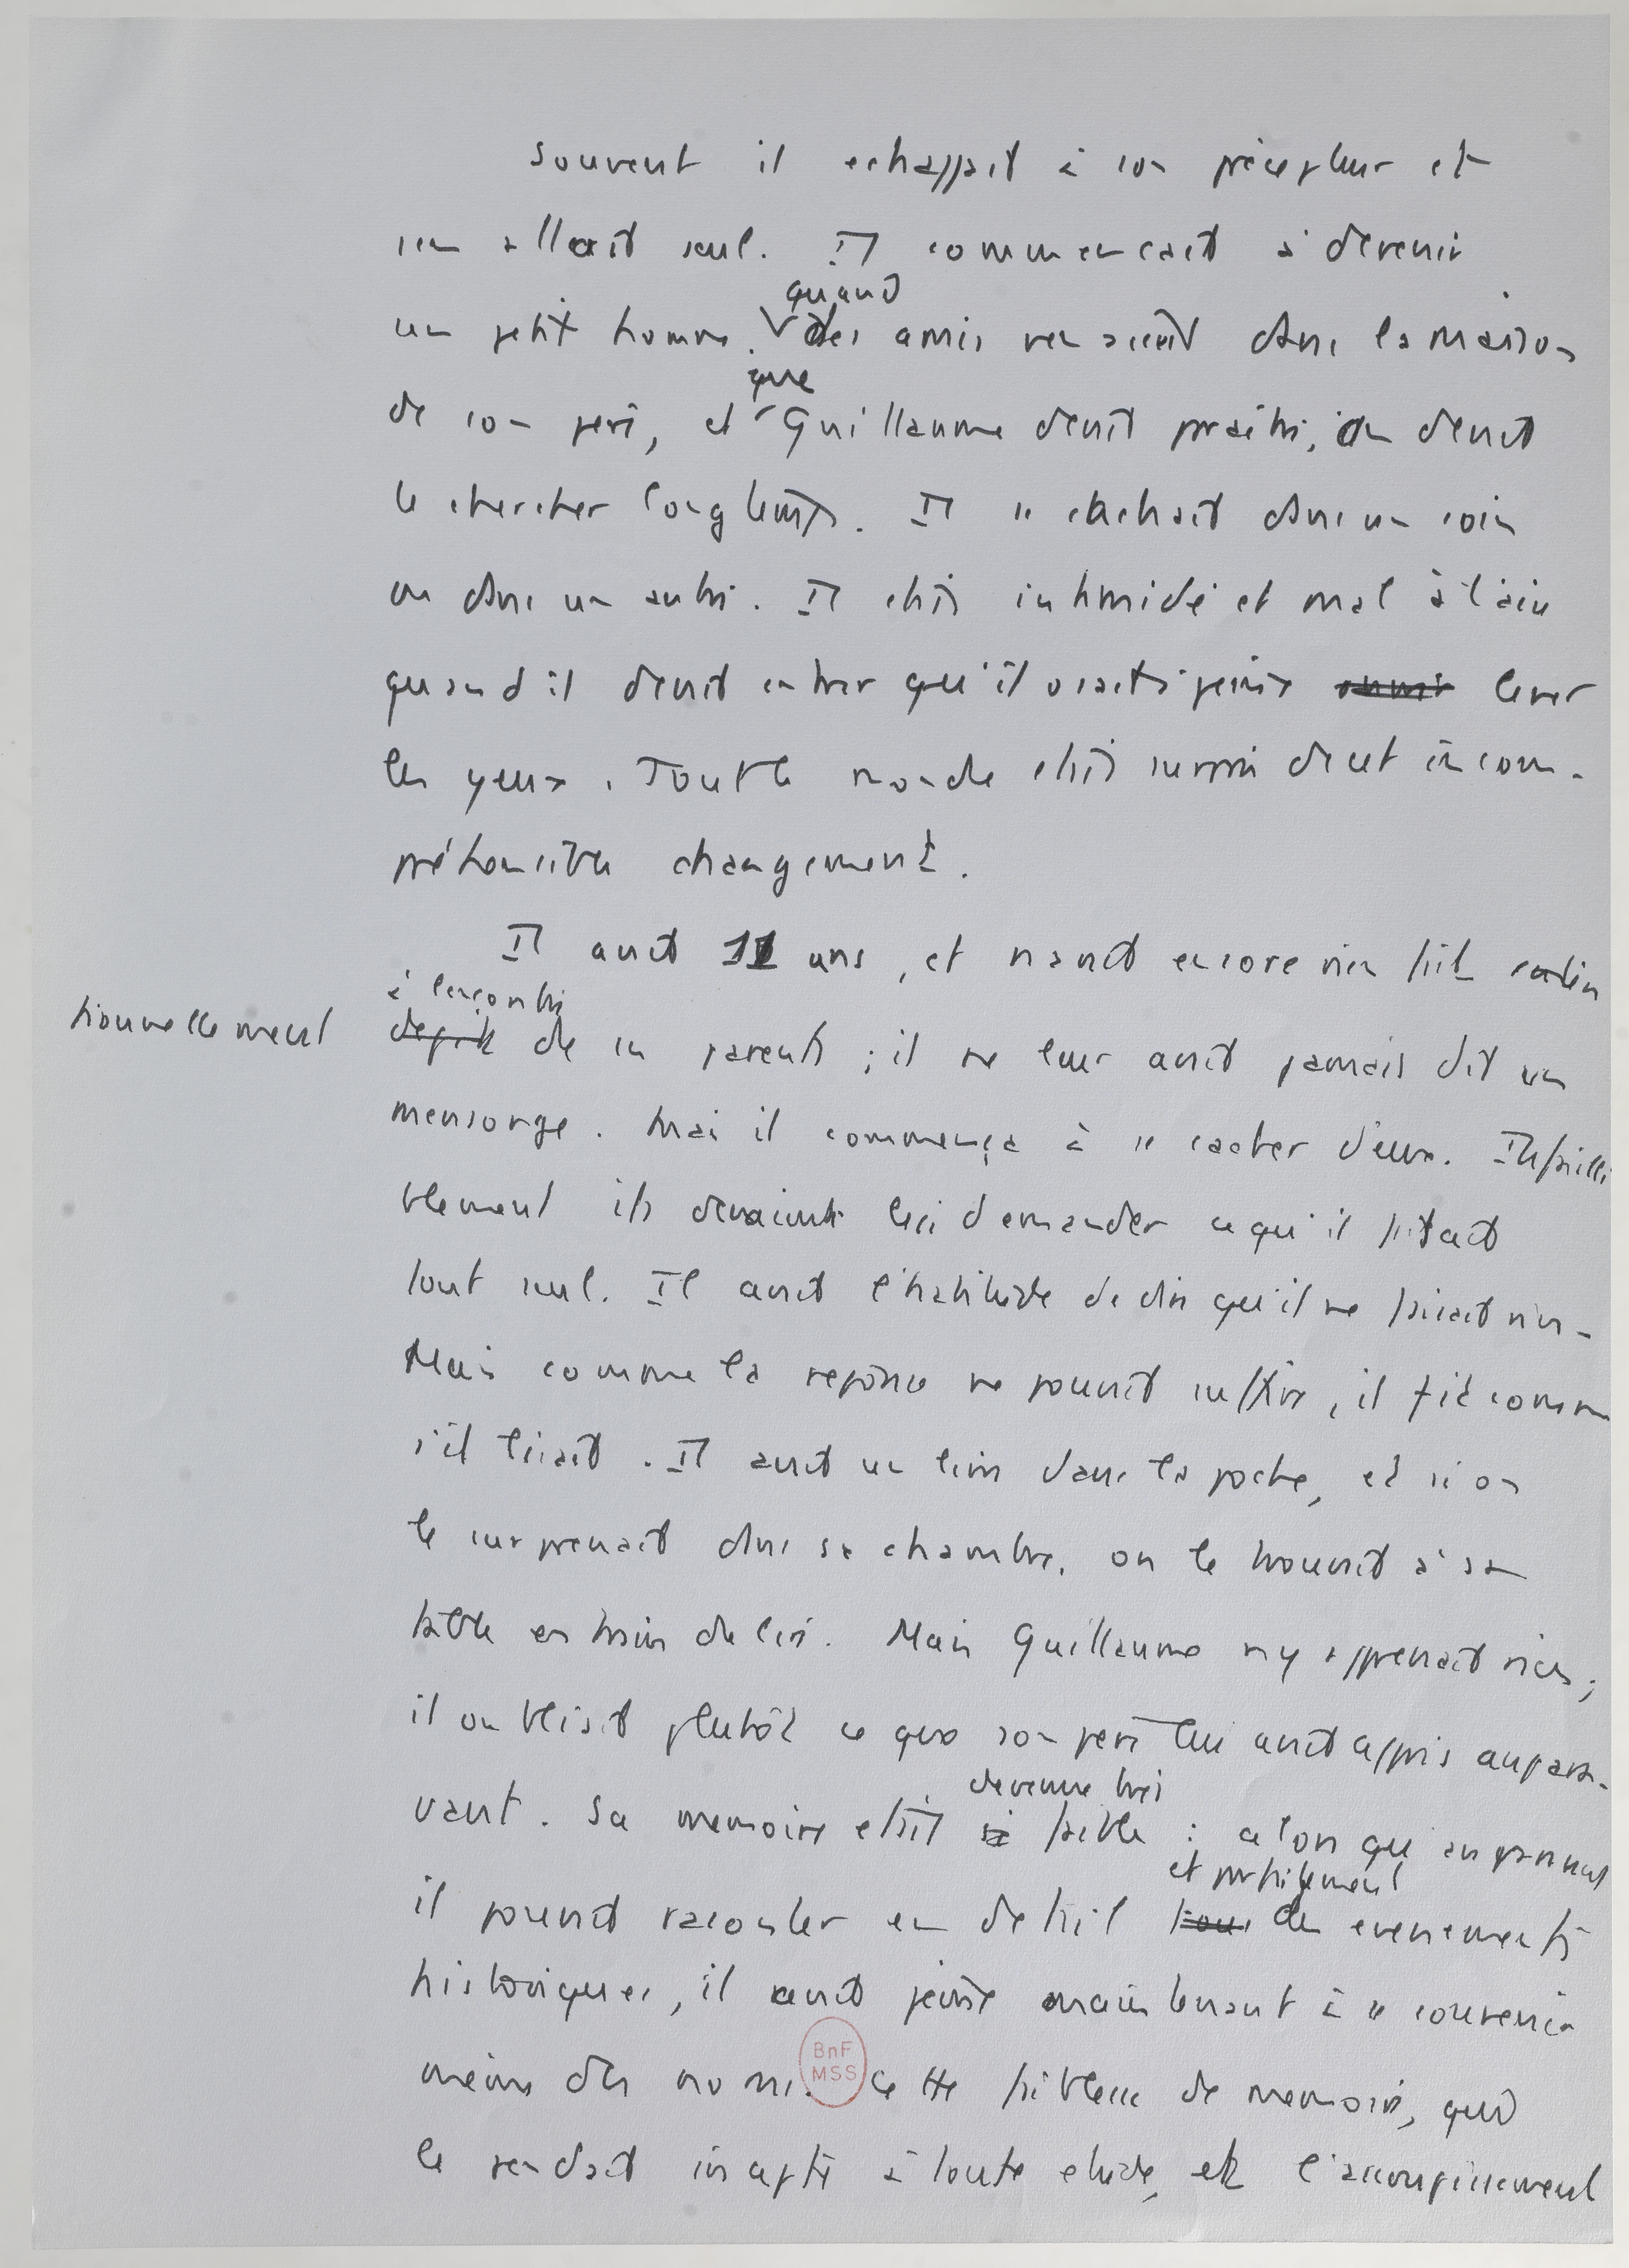 Souvent il echappait à son précepteur et
s'en allait seul. Il commencait à devenir
quand
un petit homme. des amis venaient dans la maison
que
de son père, et Guillaume devait paraître, on devait
le chercher longtemps. Il se cachait dans un coin
ou dans un autre. Il était intimidé et mal à l'aise
quand il devait entrer qu'il osait à peine lever
les yeux. Tout le monde était surpris de cet incom-
préhensible changement.
Il avait 11 ans, et n'avait encore rien fait
à l'encontre
nouvellement
de ses parents ; il ne leur avait jamais dit un
mensonge. Mais il commença à se cacher d'eux.
ils devaient lui demander ce qu'il faisait
tout seul. Il avait l'habitude de dire qu'il ne faisait rien -
Mais comme la reponse ne pouvait suffire, il fit comme
s'il lisait. Il avait un livre dans la poche, et si on
le surprenait dans sa chambre, on le trouvait à sa
table en train de lire. Mais Guillaume n'y apprenait rien ;
il oubliait plutôt ce que son père lui avait appris aupara-
devenue très
vant. Sa memoire était faible : alors qu'auparavant
et parfaitement
il pouvait raconter en detail des evenements
historiques, il avait peine maintenant à se souvenir
même des noms.
BnF
MSS
Cette faiblesse de memoire, qui
le rendait inapte à toute etude, et l'assoupissement